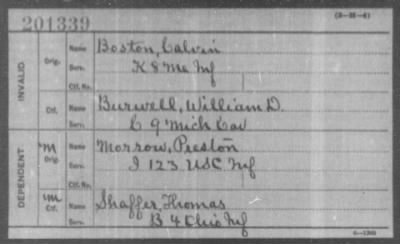 201339
(3-28-4)
INVALID
Orig.
Name Boston, Calvin
Serv. K 8 Me Inf
Ctf. No.
Ctf.
Name Burwell, William D.
Serv. C 9 Mich Cav
DEPENDENT
M Orig.
Name Morrow, Preston
Serv. I 123 USC Inf
Ctf. No.
M Ctf.
Name Shaffer, Thomas
Serv. B 4 Ohio Inf